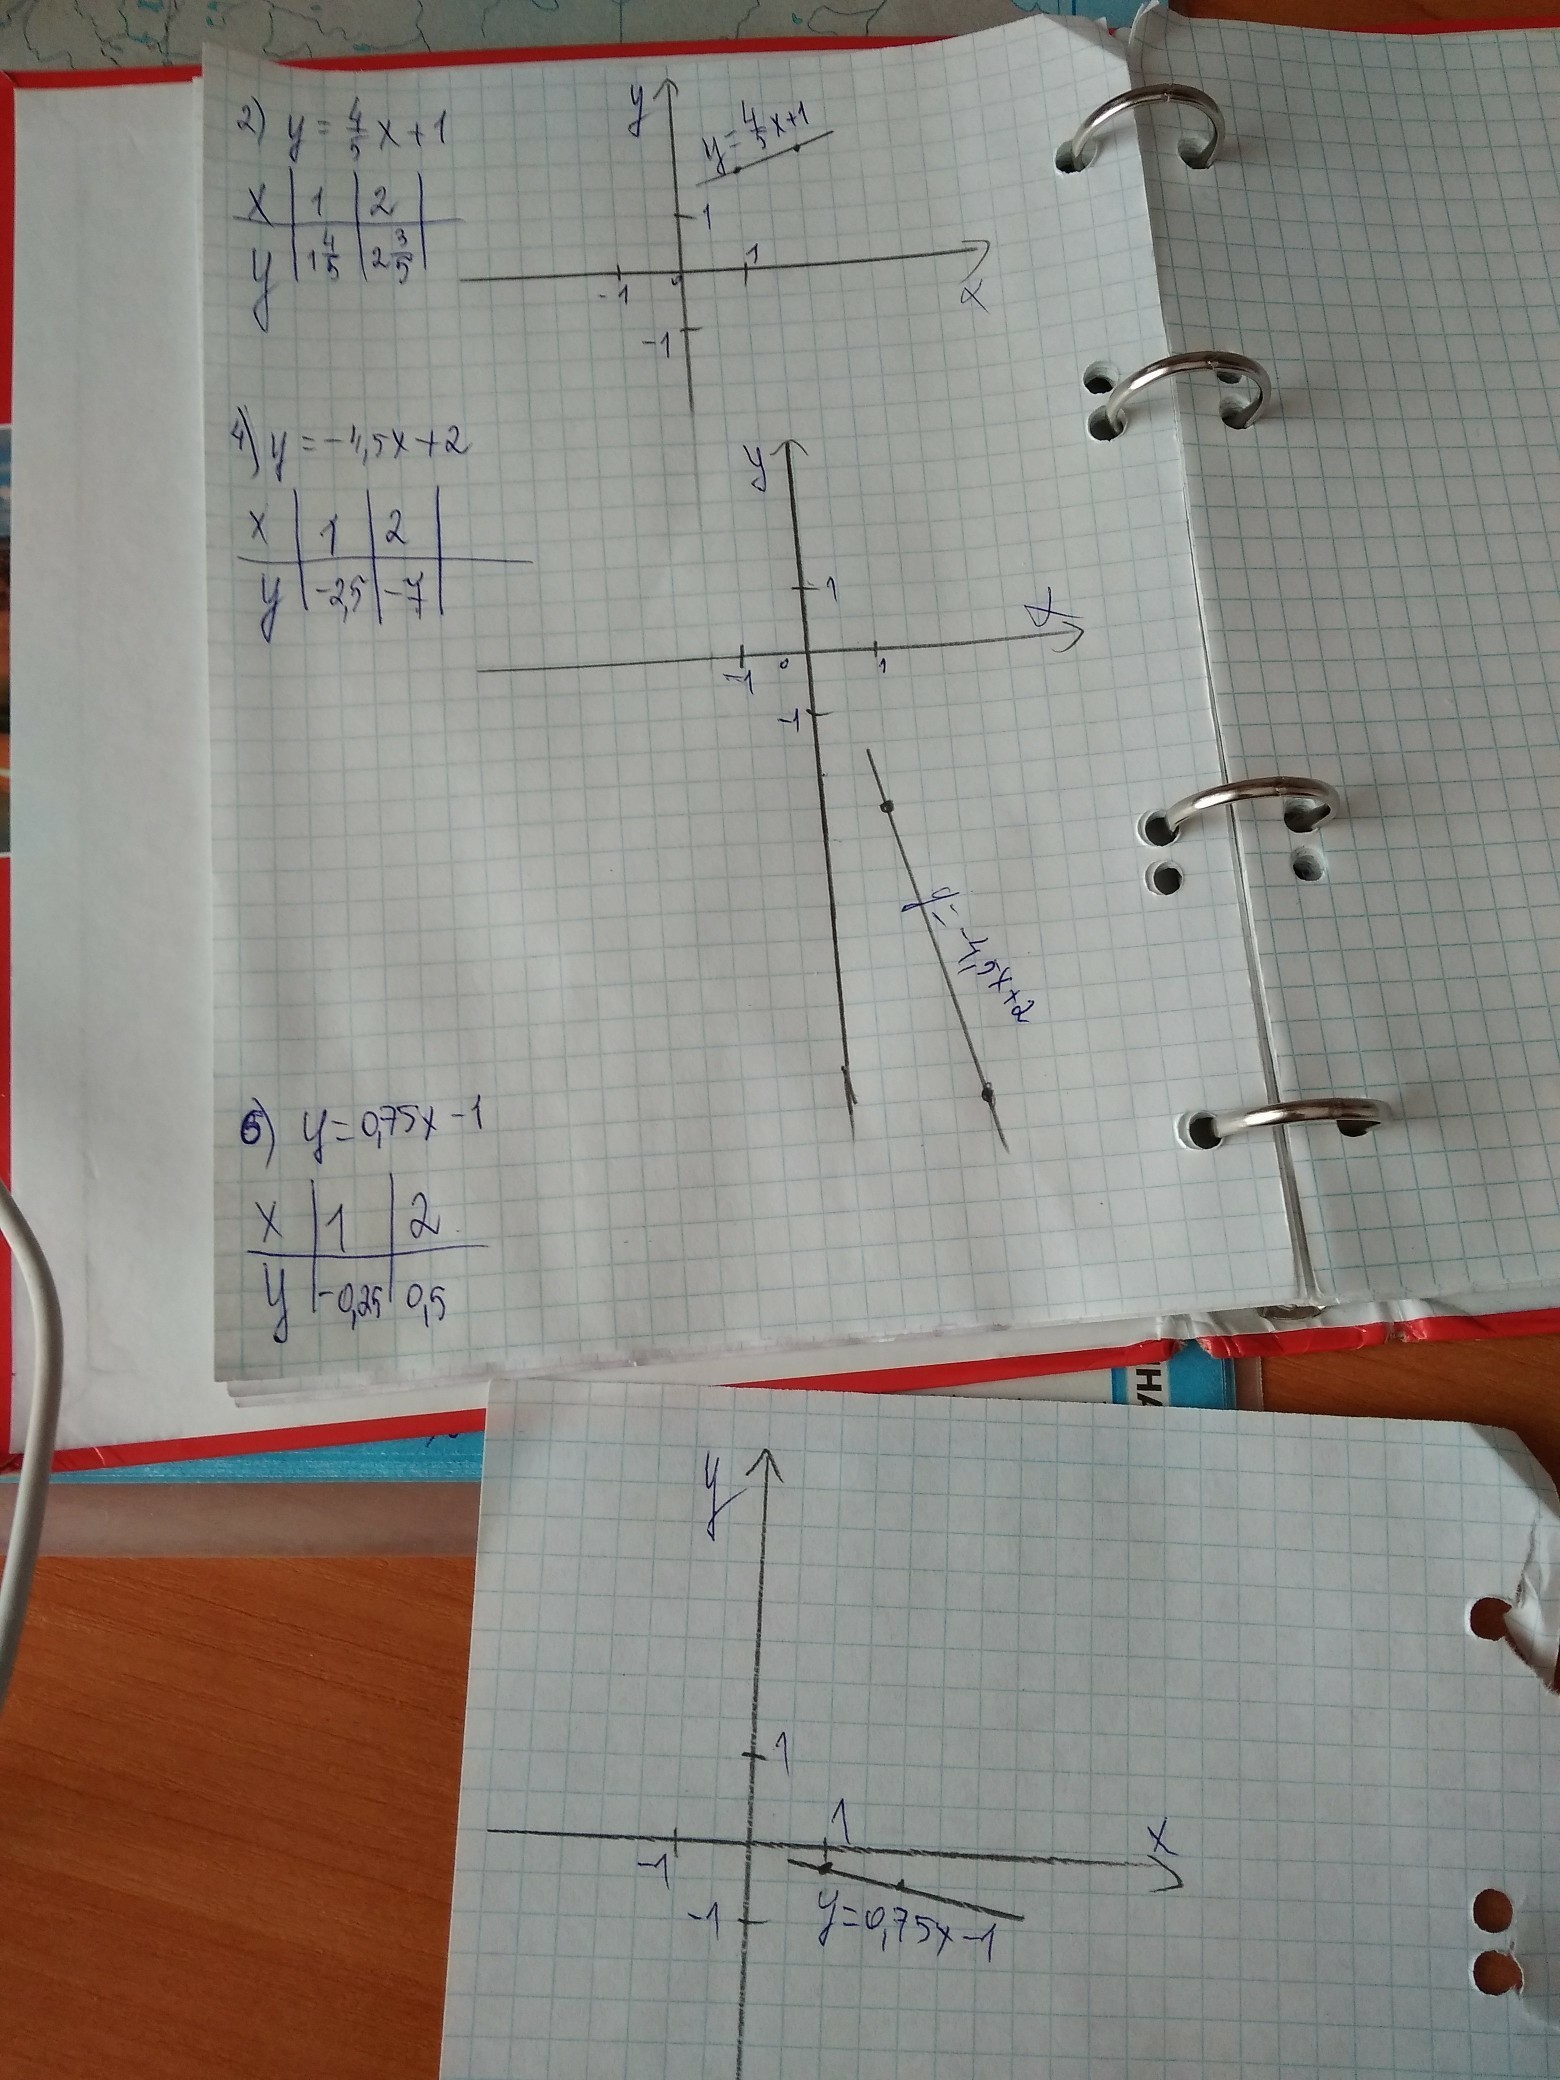 2) y = 4/5 x + 1
x | 1 | 2 |
y | 1 4/5 | 2 3/5 |
y
y = 4/5 x + 1
1
1
-1
0
x
-1
4) y = -4,5x + 2
x | 1 | 2 |
y | -2,5 | -7 |
y
1
x
-1
0
1
-1
y = -4,5x + 2
6) y = 0,75x - 1
x | 1 | 2
y | -0,25 | 0,5
НА
y
1
1
x
-1
-1
y = 0,75x - 1